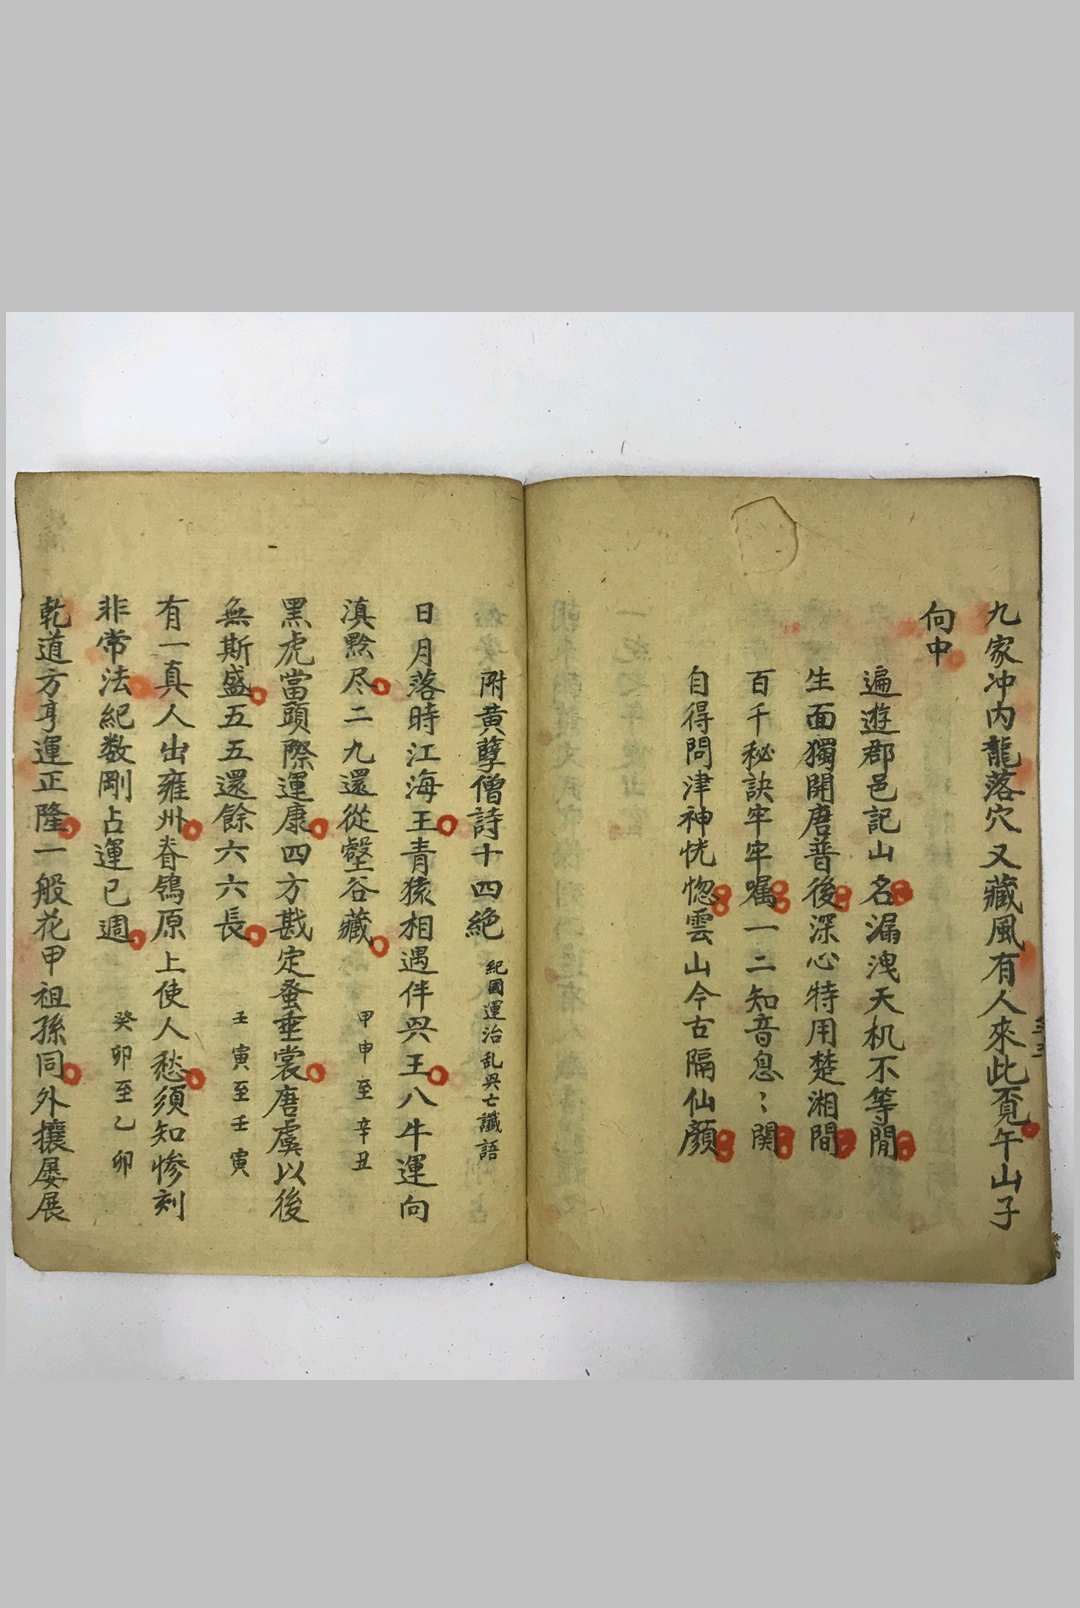 九家冲内龍落穴又藏風有人來此覔午山子
向中
遍遊郡邑記山名漏洩天机不等閒
生面獨開唐普後深心特用楚湘間
百千秘訣牢牢囑一二知音息〻関
自得問津神恍惚雲山今古隔仙顏
附黄孽僧詩十四絶 紀國運治乱興亡讖語
日月落時江海王青猿相遇伴興王八牛運向
滇黔尽二九還從壑谷藏 甲申至辛丑
黑虎當頭際運康四方戡定蚕垂裳唐虞以後
無斯盛五五還餘六六長 壬寅至壬寅
有一真人出雍州眷鴒原上使人愁須知惨刻
非常法紀数剛占運已週 癸卯至乙卯
乾道方亨運正隆一般花甲祖孫同外攘屡展